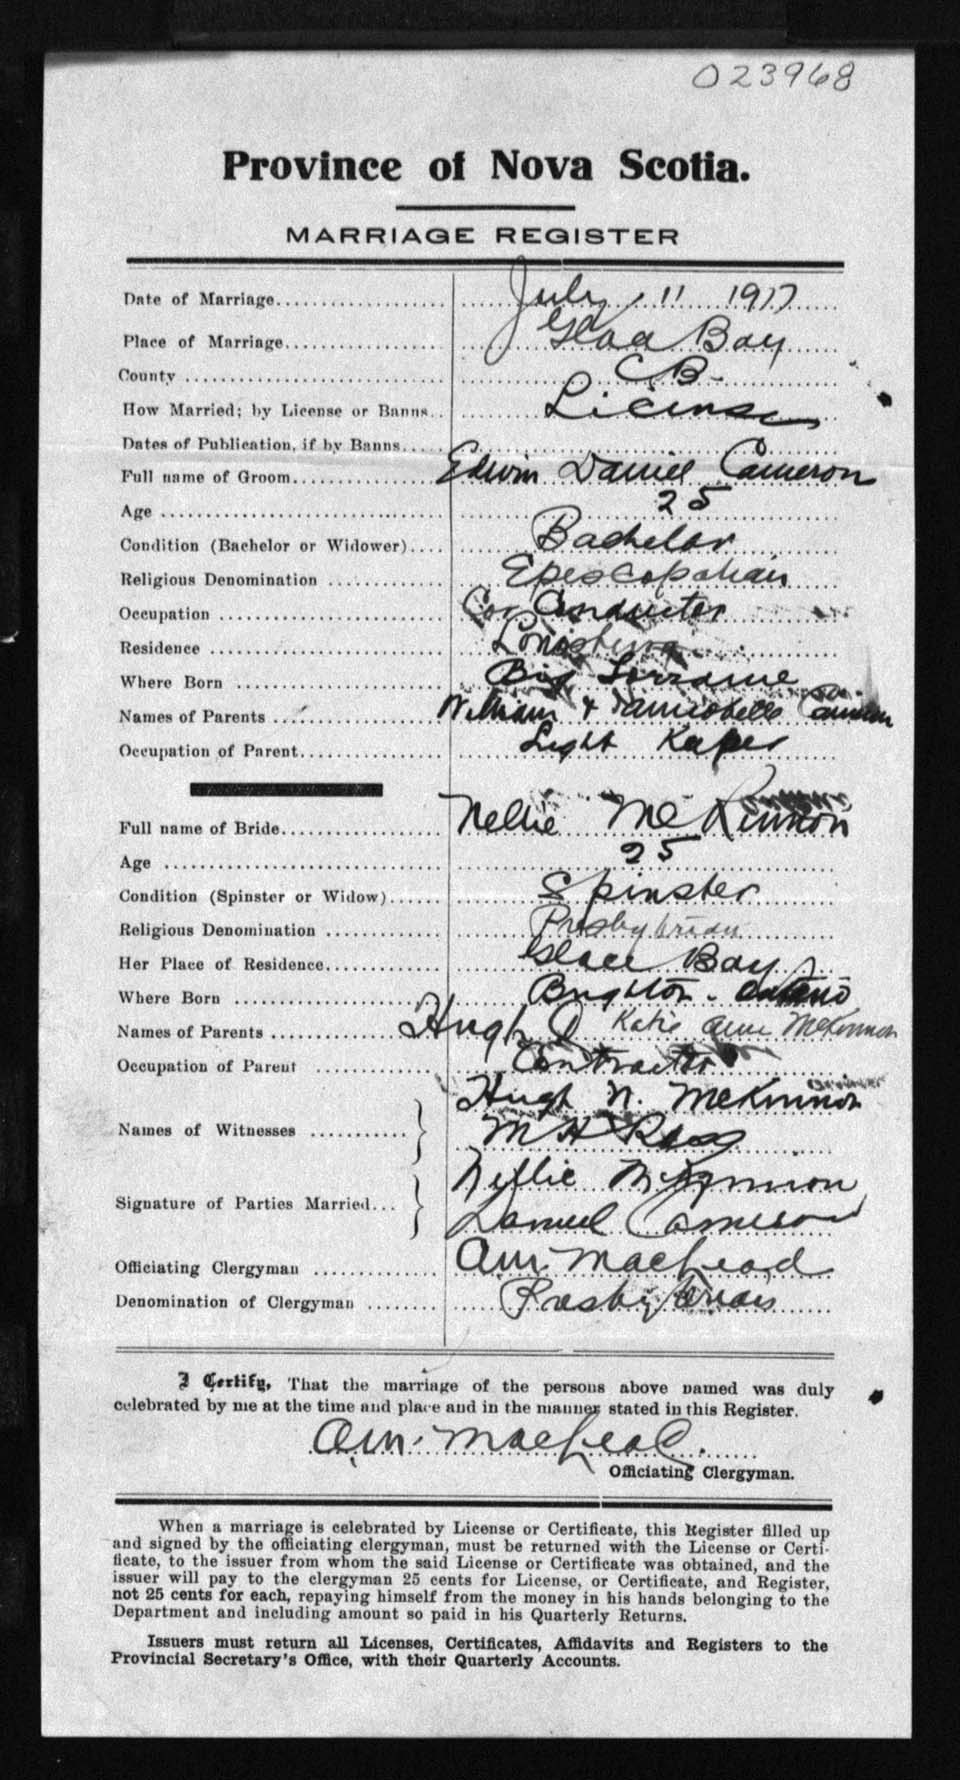 023968
Province of Nova Scotia.
MARRIAGE REGISTER
Date of Marriage July 11 1917
Place of Marriage Glace Bay
County C B.
How Married; by License or Banns License
Dates of Publication, if by Banns
Full name of Groom Edwin Daniel Cameron
Age 25
Condition (Bachelor or Widower) Bachelor
Religious Denomination Episcopalian
Occupation Car Conductor
Residence Louisburg
Where Born Big Lorraine
Names of Parents William & Annabelle Cameron
Occupation of Parent Light Keper
Full name of Bride Nellie McKinnon
Age 25
Condition (Spinster or Widow) Spinster
Religious Denomination Presbyterian
Her Place of Residence Glace Bay
Where Born Brighton - Ontario
Names of Parents Hugh Katie Ann McKinnon
Occupation of Parent Contractor
Names of Witnesses Hugh N. McKinnon
M H Ross
Signature of Parties Married Nellie McKinnon
Daniel Cameron
Officiating Clergyman MacLeod
Denomination of Clergyman Presbyterian
I Certify, That the marriage of the persons above named was duly
celebrated by me at the time and place and in the manner stated in this Register.
MacLeod.
Officiating Clergyman.
When a marriage is celebrated by License or Certificate, this Register filled up
and signed by the officiating clergyman, must be returned with the License or Certi-
ficate, to the issuer from whom the said License or Certificate was obtained, and the
issuer will pay to the clergyman 25 cents for License, or Certificate, and Register,
not 25 cents for each, repaying himself from the money in his hands belonging to the
Department and including amount so paid in his Quarterly Returns.
Issuers must return all Licenses, Certificates, Affidavits and Registers to the
Provincial Secretary's Office, with their Quarterly Accounts.